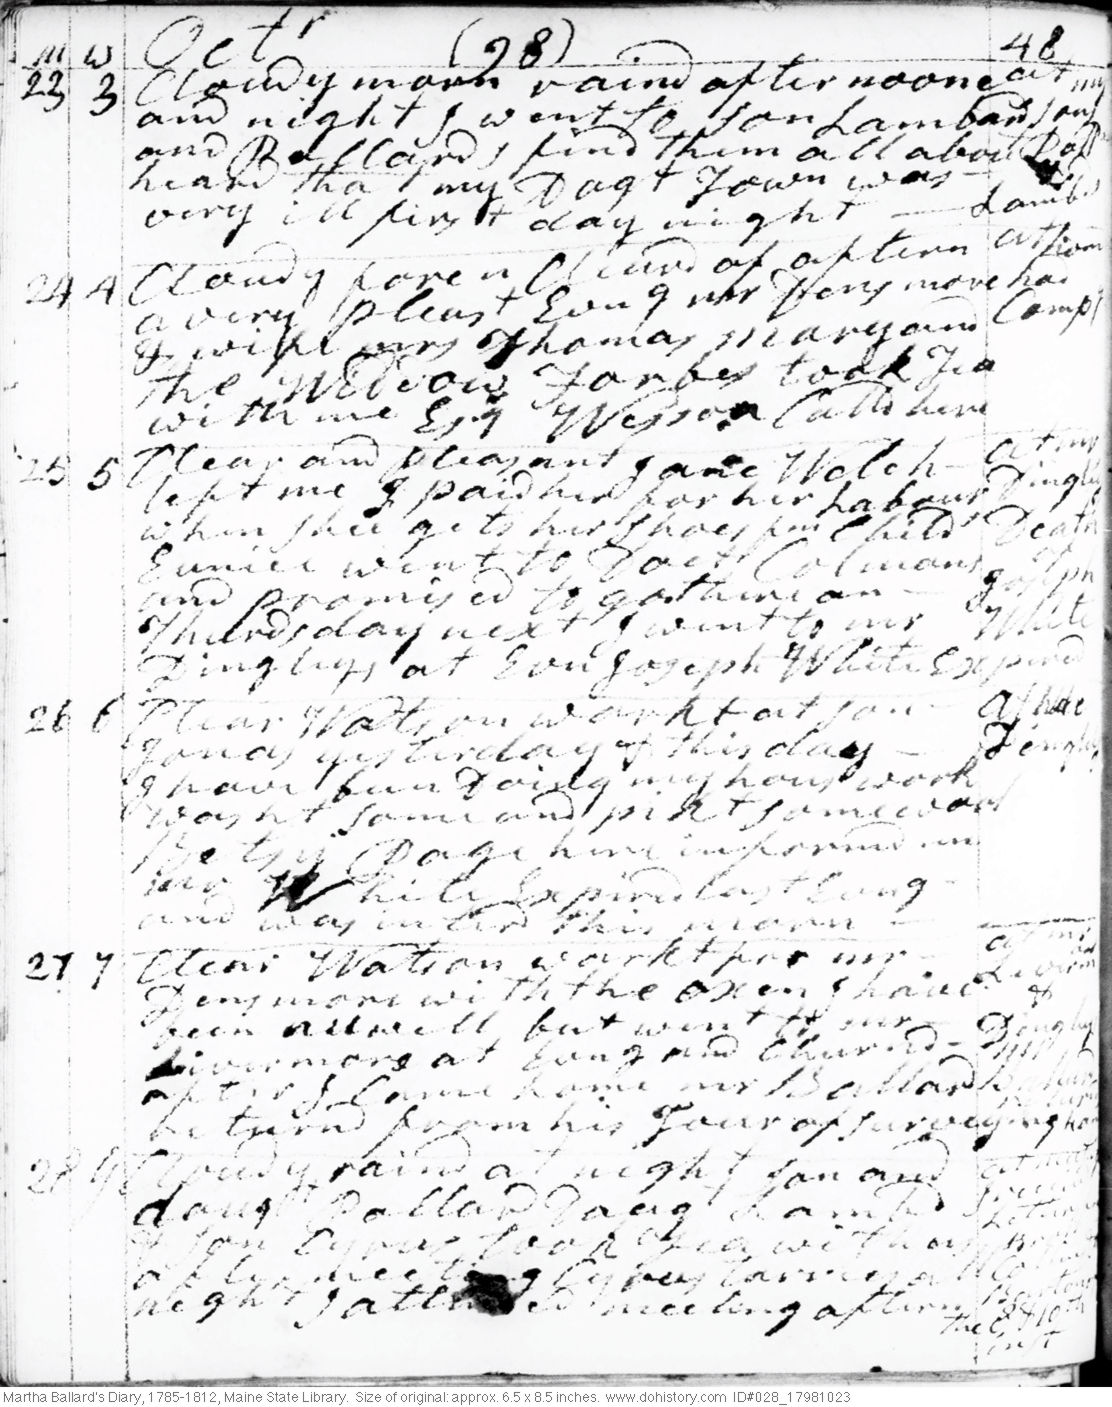 m w Octr (98) 48
23 3 Cloudy morn raind afternoone at my
and night I went to son Lambards sons
and Ballards find them all about Do &
heard that my Dagt Town was — Lambd
very ill first day night —
24 4 Cloudy foren Cleard of aftern at hom
a very pleast Evng mr Densmore had
& wife mrs Thomas mary and Comp
the Widow Forbes took Tea
with me Esq Wesson Calld here
25 5 Clear and pleasant Jane Welch — at mr
left me I paid her for her Labour Dingly
when shee gets her shoes fm Child Death
Eunice went to Doct Colmans Joseph
and promised to go there on — White
Thursday next I went to mr
Dinglys at Evn Joseph White Expired
26 6 Clear Watson workt at son — at hae
Jonas yesterday & this day — Dinglys
I have been Doing my hous work
washt some and pikt some wool
Betsy Page here informd me
mr White Expired last Evng —
and was interd this morn —
27 7 Clear Watson workt for mr — at mr
Densmore with the oxen I have Livermor
been unwell but went to mr — &
Livermors at Evng and Churnd — Dingly
after I Came home mr Ballard
returnd from his Tour of surveying
28 Cloudy raind at night son and
daugt Ballard Daug Lambd
& son Cyrus took Tea with us
after meeting Cyrus tarried all
night I attended meeting aftern
the 8 & 10th
inst
Martha Ballard's Diary, 1785-1812, Maine State Library. Size of original: approx. 6.5 x 8.5 inches. www.dohistory.com ID#028_17981023